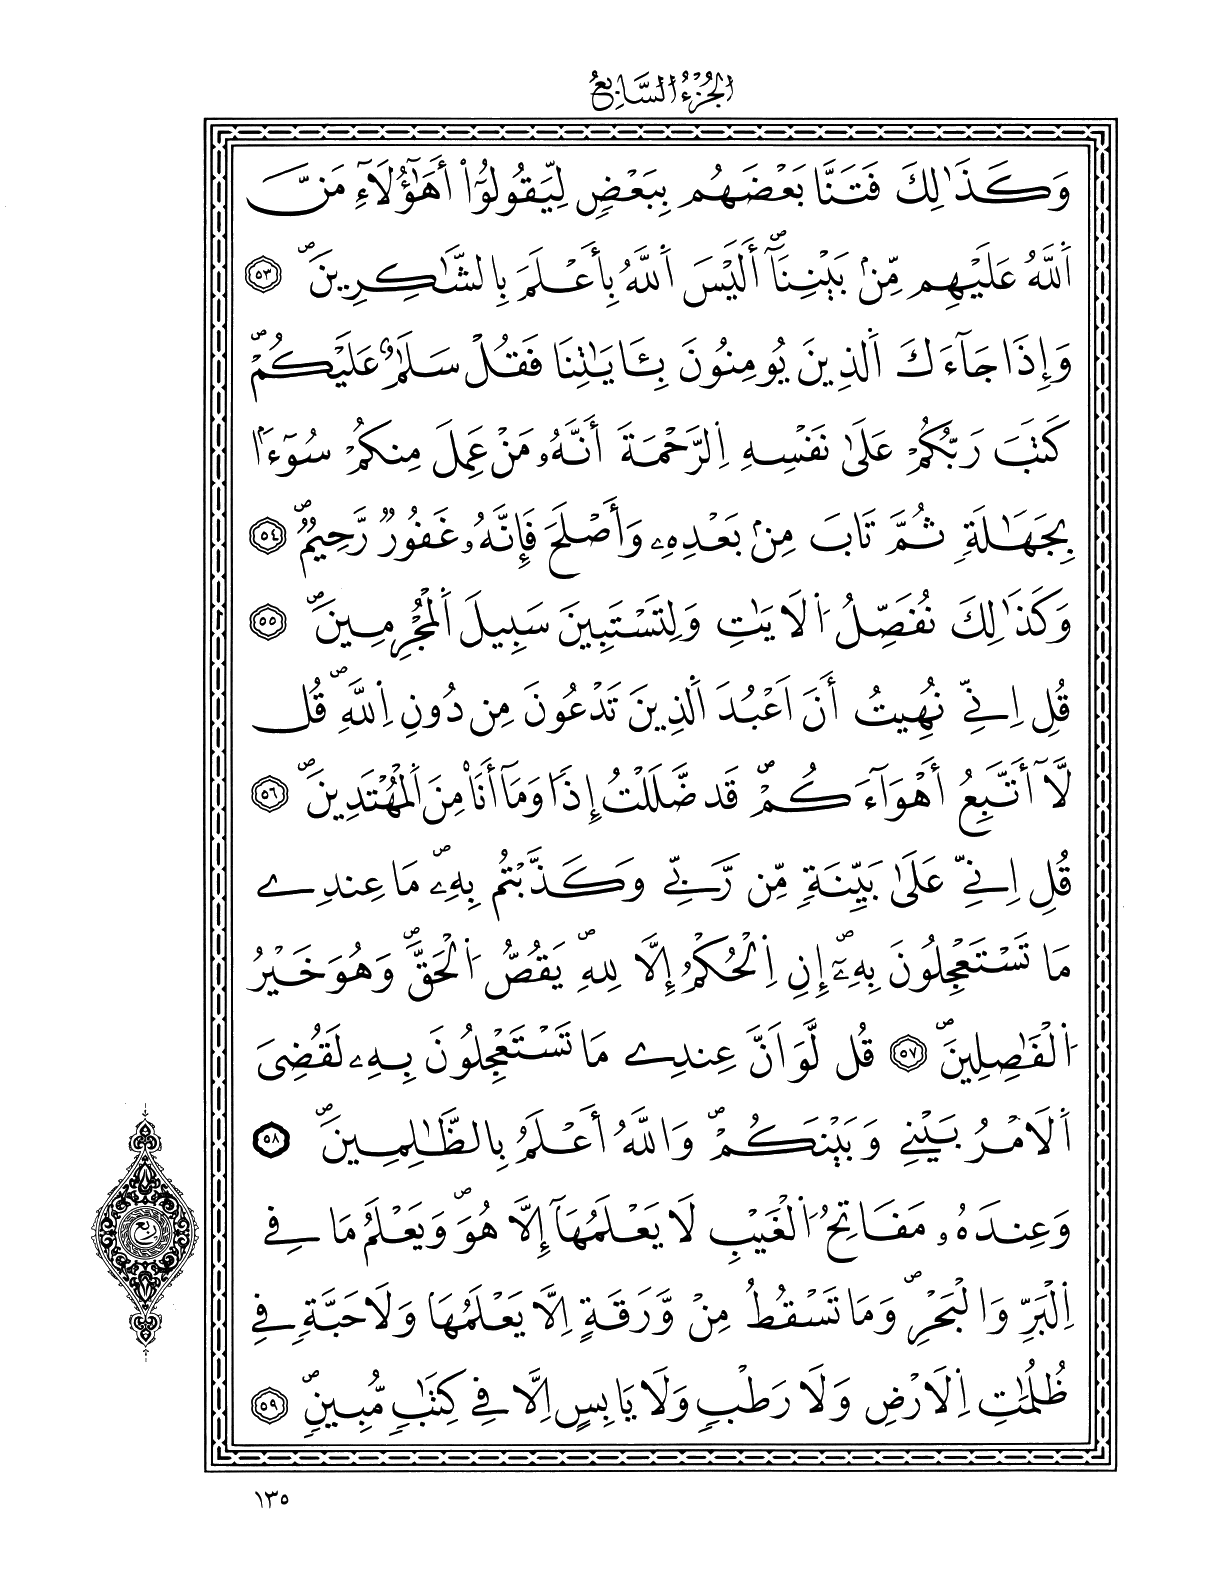 الجُزْءُ السَّابِعُ
وَكَذَٰلِكَ فَتَنَّا بَعْضَهُم بِبَعْضٖ لِّيَقُولُوٓاْ أَهَٰٓؤُلَآءِ مَنَّ
اَ۬للَّهُ عَلَيْهِم مِّنۢ بَيْنِنَآۖ أَلَيْسَ اَ۬للَّهُ بِأَعْلَمَ بِالشَّٰكِرِينَۖ ٥٣
وَإِذَا جَآءَكَ اَ۬لذِينَ يُومِنُونَ بِـَٔايَٰتِنَا فَقُلْ سَلَٰمٌ عَلَيْكُمْۖ
كَتَبَ رَبُّكُمْ عَلَىٰ نَفْسِهِ اِ۬لرَّحْمَةَ أَنَّهُۥ مَنْ عَمِلَ مِنكُمْ سُوٓءَاۢ
بِجَهَٰلَةٖ ثُمَّ تَابَ مِنۢ بَعْدِهِۦ وَأَصْلَحَ فَإِنَّهُۥ غَفُورٞ رَّحِيمٞۖ ٥٤
وَكَذَٰلِكَ نُفَصِّلُ اُ۬لَايَٰتِ وَلِتَسْتَبِينَ سَبِيلَ اَ۬لْمُجْرِمِينَۖ ٥٥
قُلِ اِنِّے نُهِيتُ أَنَ اَعْبُدَ اَ۬لذِينَ تَدْعُونَ مِن دُونِ اِ۬للَّهِۖ قُل
لَّآ أَتَّبِعُ أَهْوَآءَكُمْۖ قَد ضَّلَلْتُ إِذاٗ وَمَآ أَنَا۠ مِنَ اَ۬لْمُهْتَدِينَۖ ٥٦
قُلِ اِنِّے عَلَىٰ بَيِّنَةٖ مِّن رَّبِّے وَكَذَّبْتُم بِهِۦۖ مَا عِندِے
مَا تَسْتَعْجِلُونَ بِهِۦٓۖ إِنِ اِ۬لْحُكْمُ إِلَّا لِلهِۖ يَقُصُّ اُ۬لْحَقَّۖ وَهُوَ خَيْرُ
اُ۬لْفَٰصِلِينَۖ ٥٧ قُل لَّوَ اَنَّ عِندِے مَا تَسْتَعْجِلُونَ بِهِۦ لَقُضِيَ
اَ۬لَامْرُ بَيْنِے وَبَيْنَكُمْۖ وَاللَّهُ أَعْلَمُ بِالظَّٰلِمِينَۖ ٥٨
وَعِندَهُۥ مَفَاتِحُ اُ۬لْغَيْبِ لَا يَعْلَمُهَآ إِلَّا هُوَۖ وَيَعْلَمُ مَا فِے
اِ۬لْبَرِّ وَالْبَحْرِۖ وَمَا تَسْقُطُ مِنْ وَّرَقَةٍ اِلَّا يَعْلَمُهَا وَلَا حَبَّةٖ فِے
ظُلُمَٰتِ اِ۬لَارْضِ وَلَا رَطْبٖ وَلَا يَابِسٍ اِلَّا فِے كِتَٰبٖ مُّبِينٖۖ ٥٩
ربع حزب
١٣٥